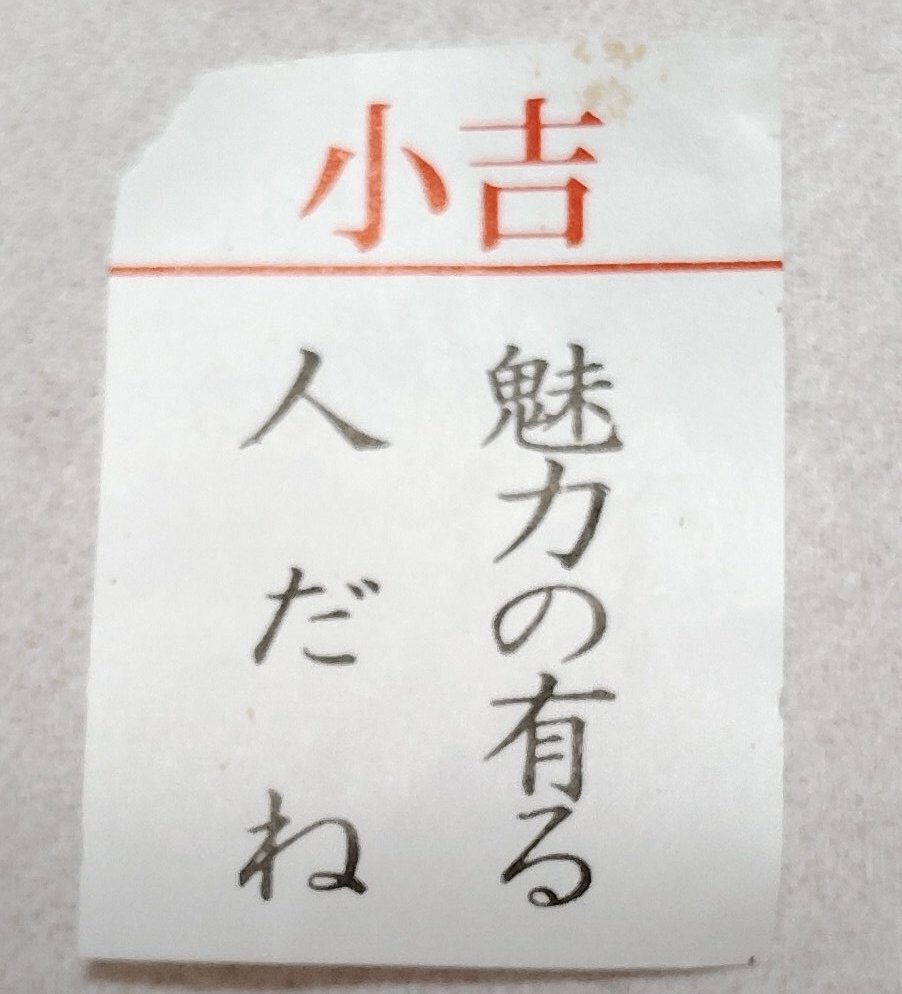 小吉
魅力の有る
人だね